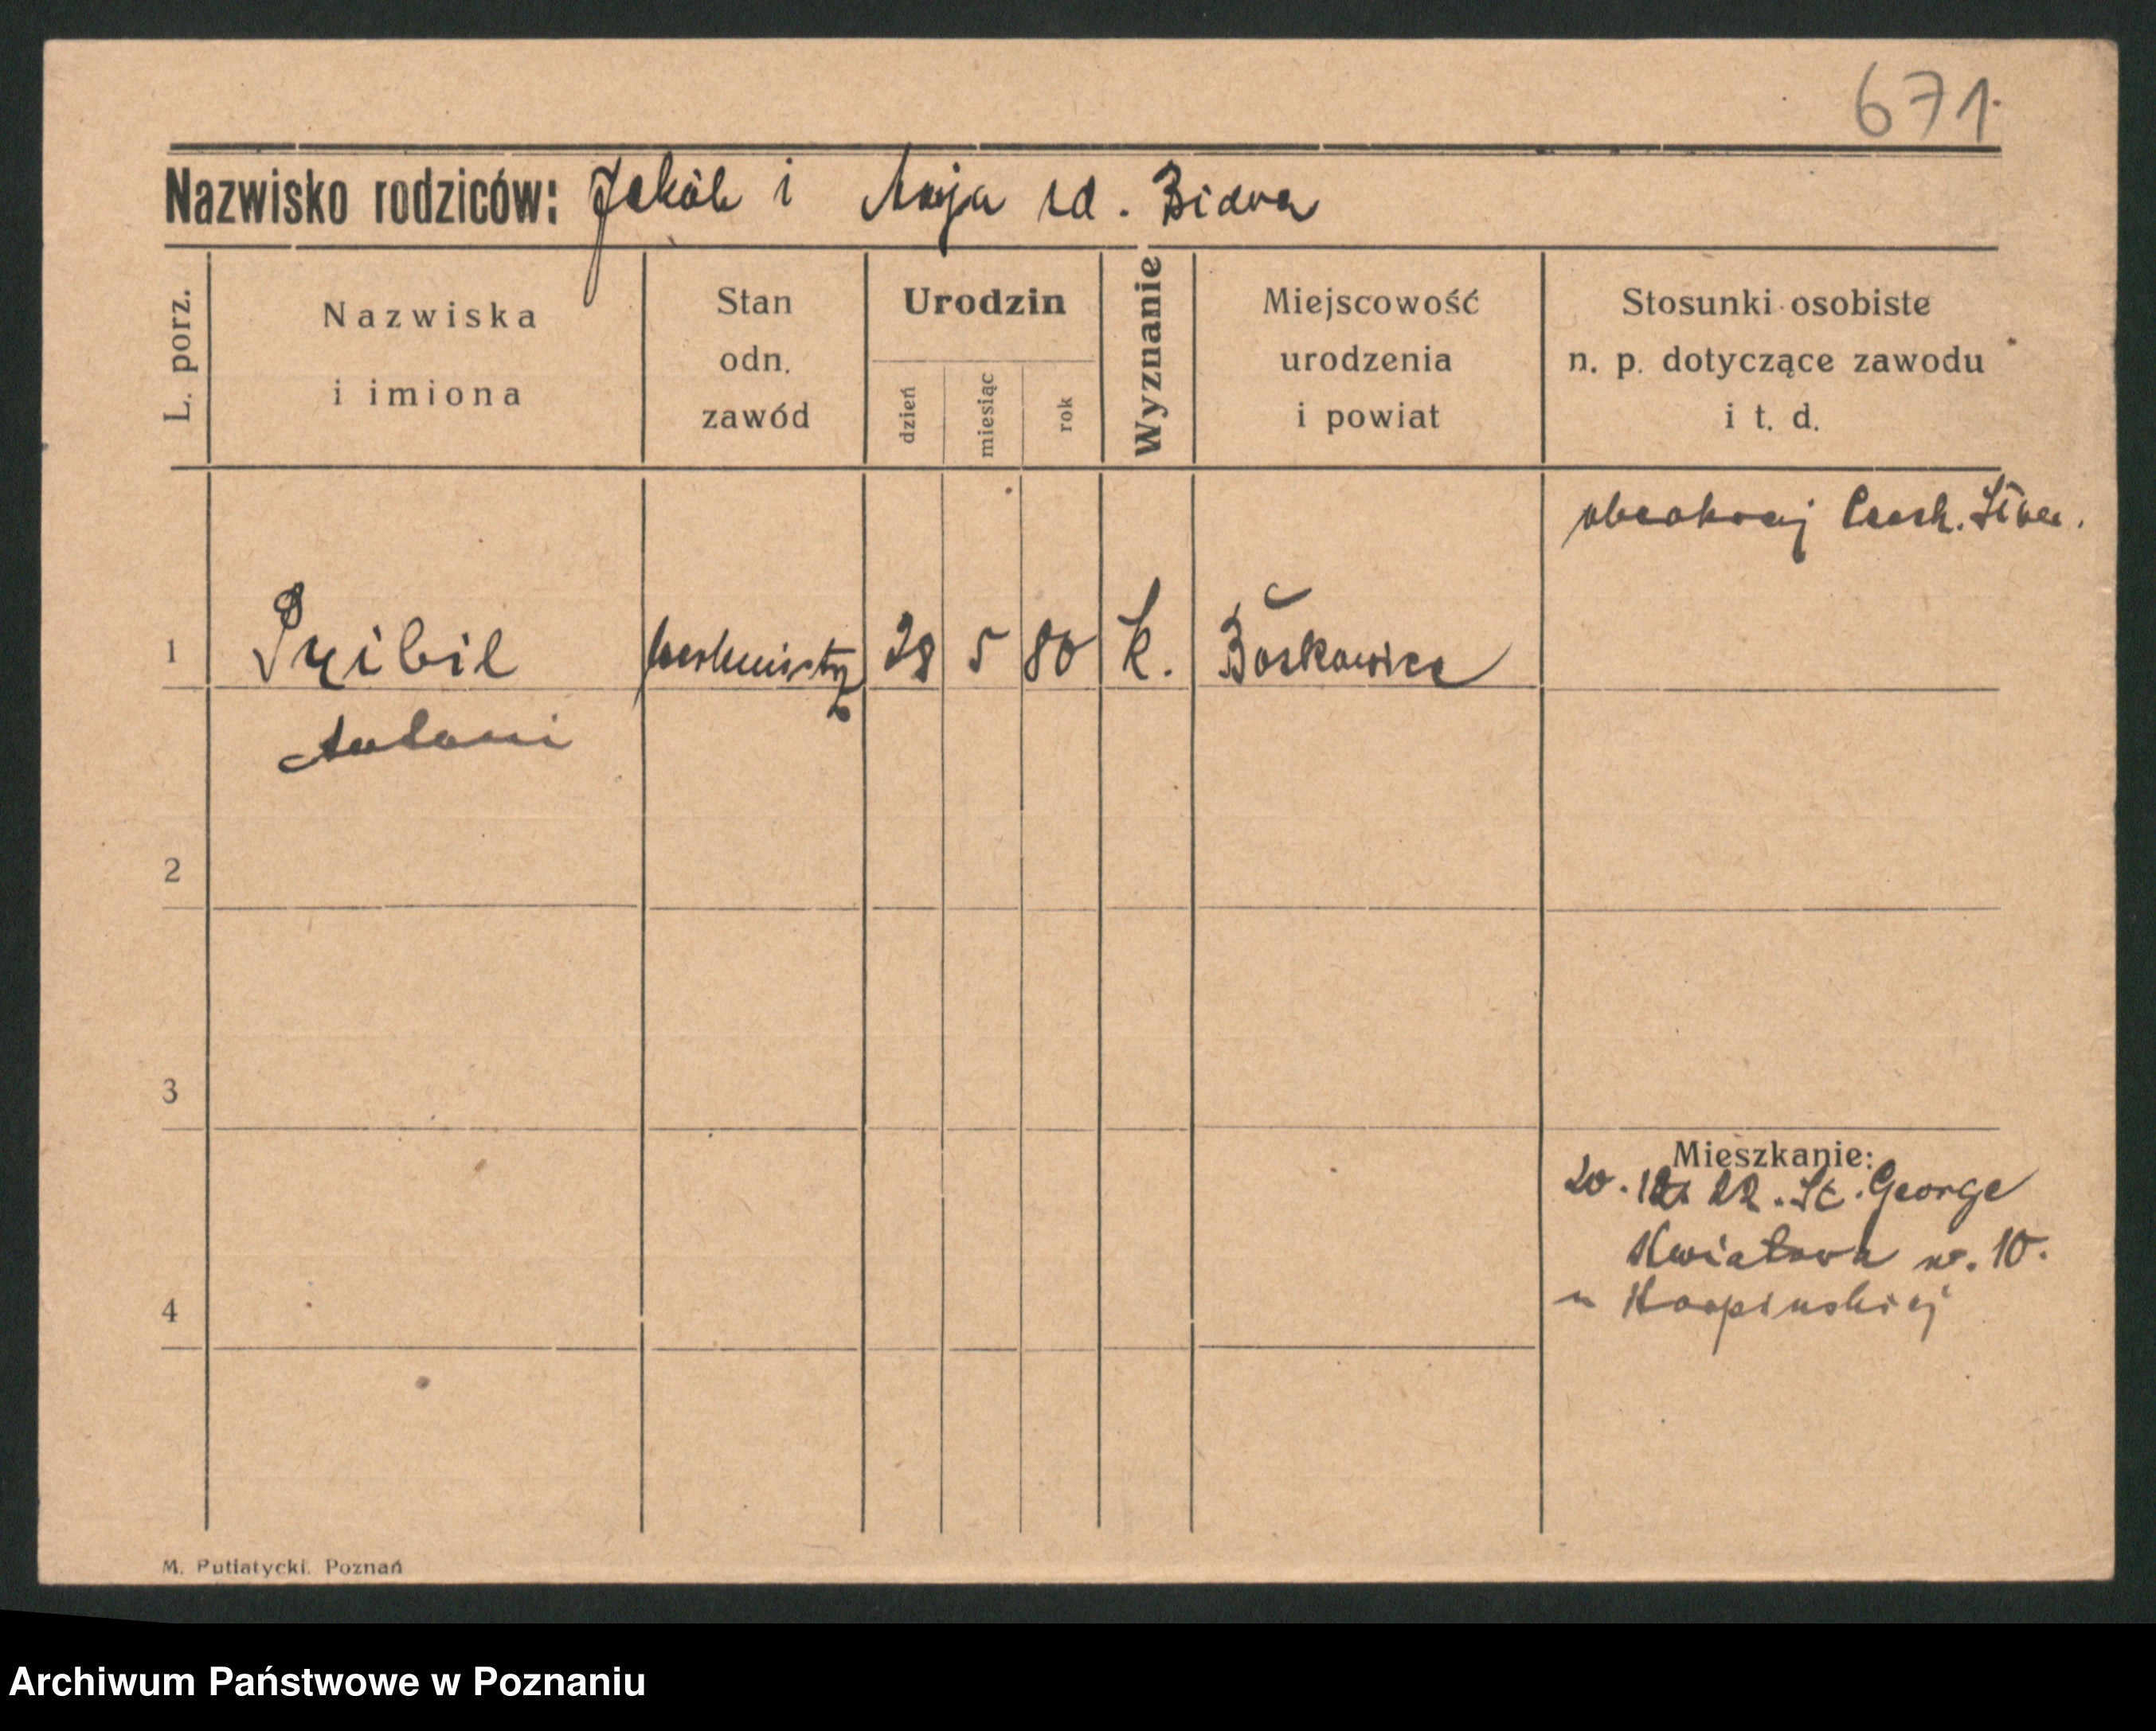 671.
Nazwisko rodziców: Jakób i Maja rd. Bidva
L. porz.
Nazwiska
i imiona
Stan
odn.
zawód
Urodzin
dzień
miesiąc
rok
Wyznanie
Miejscowość
urodzenia
i powiat
Stosunki osobiste
n. p. dotyczące zawodu
i t. d.
obcokraj Czech. Słow.
1 Pribil 28 5 80 k. Boskowice
Antoni
2
3
Mieszkanie:
20. 12. 22. St. George
Kwiatowa nr. 10.
4
u Karpinskiej
M. Putiatycki. Poznań
Archiwum Państwowe w Poznaniu